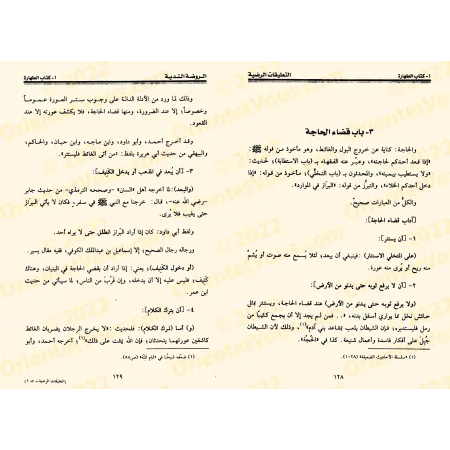 ١- كتاب الطهارة
التعليقات الرضية
٣- باب قضاء الحاجة
والحاجة: كناية عن خروج البول والغائط، وهو مأخوذ من قوله ﷺ:
«إذا قعد أحدكم لحاجته»، وعبّر عنه الفقهاء بـ (باب الاستطابة) لحديث:
«ولا يستطيب بيمينه»، والمحدثون بـ (باب التخلّي)، مأخوذة من قوله: «إذا
دخل أحدكم الخلاء»، والتبرّز من قوله: «البراز في الموارد».
والكلّ من العبارات صحيحٌ.
[آداب قضاء الحاجة]:
١- [أن يستتر]:
(على المتخلي الاستتار): فينبغي أن يبعد؛ لئلا يُسمع منه صوت أو يُشمّ
منه ريح أو يُرى منه عورة.
٢- [أن لا يرفع ثوبه حتى يدنو من الأرض]:
(ولا يرفع ثوبه حتى يدنو من الأرض) عند قضاء الحاجة، ويستتر بمثل
حائش نخل مما يواري أسفل بدنه، .. فمن لم يجد إلا أن يجمع كثيبًا من
رمل فليستدبره، فإن الشيطان يلعب بمقاعد بني آدم(١)، وذلك لأن الشيطان
جُبِلَ على أفكار فاسدة وأعمال شنيعة. كذا في
(١) «سلسلة الأحاديث الضعيفة» (١٠٢٨).
١٢٨
الروضة الندية
١- كتاب الطهارة
وذلك لما ورد من الأدلة الدالة على وجوب ستر العورة عمومًا
وخصوصًا؛ إلا عند الضرورة، ومنها قضاء الحاجة، فلا يكشف عورته إلا عند
القعود.
وقد أخرج أحمد، وأبو داود، وابن ماجه، وابن حبان، والحاكم،
والبيهقي من حديث أبي هريرة بلفظ: «من أتى الغائط فليستتر».
٣- [أن يُبعد في المذهب أو يدخل الكنيف]:
(والبعد): لما أخرجه أهل «السنن» -وصححه الترمذي- من حديث جابر
-رضي الله عنه-، قال: خرجنا مع النبي ﷺ في سفرٍ فكان لا يأتي البراز
حتى يغيب فلا يُرى.
ولفظ أبي داود: كان إذا أراد البراز انطلق حتى لا يراه أحد.
ورجاله رجال الصحيح؛ إلا إسماعيل بن عبدالملك الكوفي، ففيه مقال يسير.
(أو دخول الكنيف)؛ يعني: إذا أراد أن يقضي الحاجة في البنيان، وهناك
كنيف؛ فليس عليه إلا أن يدخله، وإن قَرُبَ من الناس؛ لما سيأتي من حديث
ابن عمر.
٤- [أن يترك الكلام]:
(و) أما (ترك الكلام): فلحديث: «لا يخرج الرجلان يضربان الغائط
كاشفين عورتهما يتحدثان؛ فإن الله يمقت على ذلك»(١)؛ أخرجه أحمد، وأبو
(١) ضعّفه شيخنا في «تمام المنّة» (ص٥٨).
١٢٩